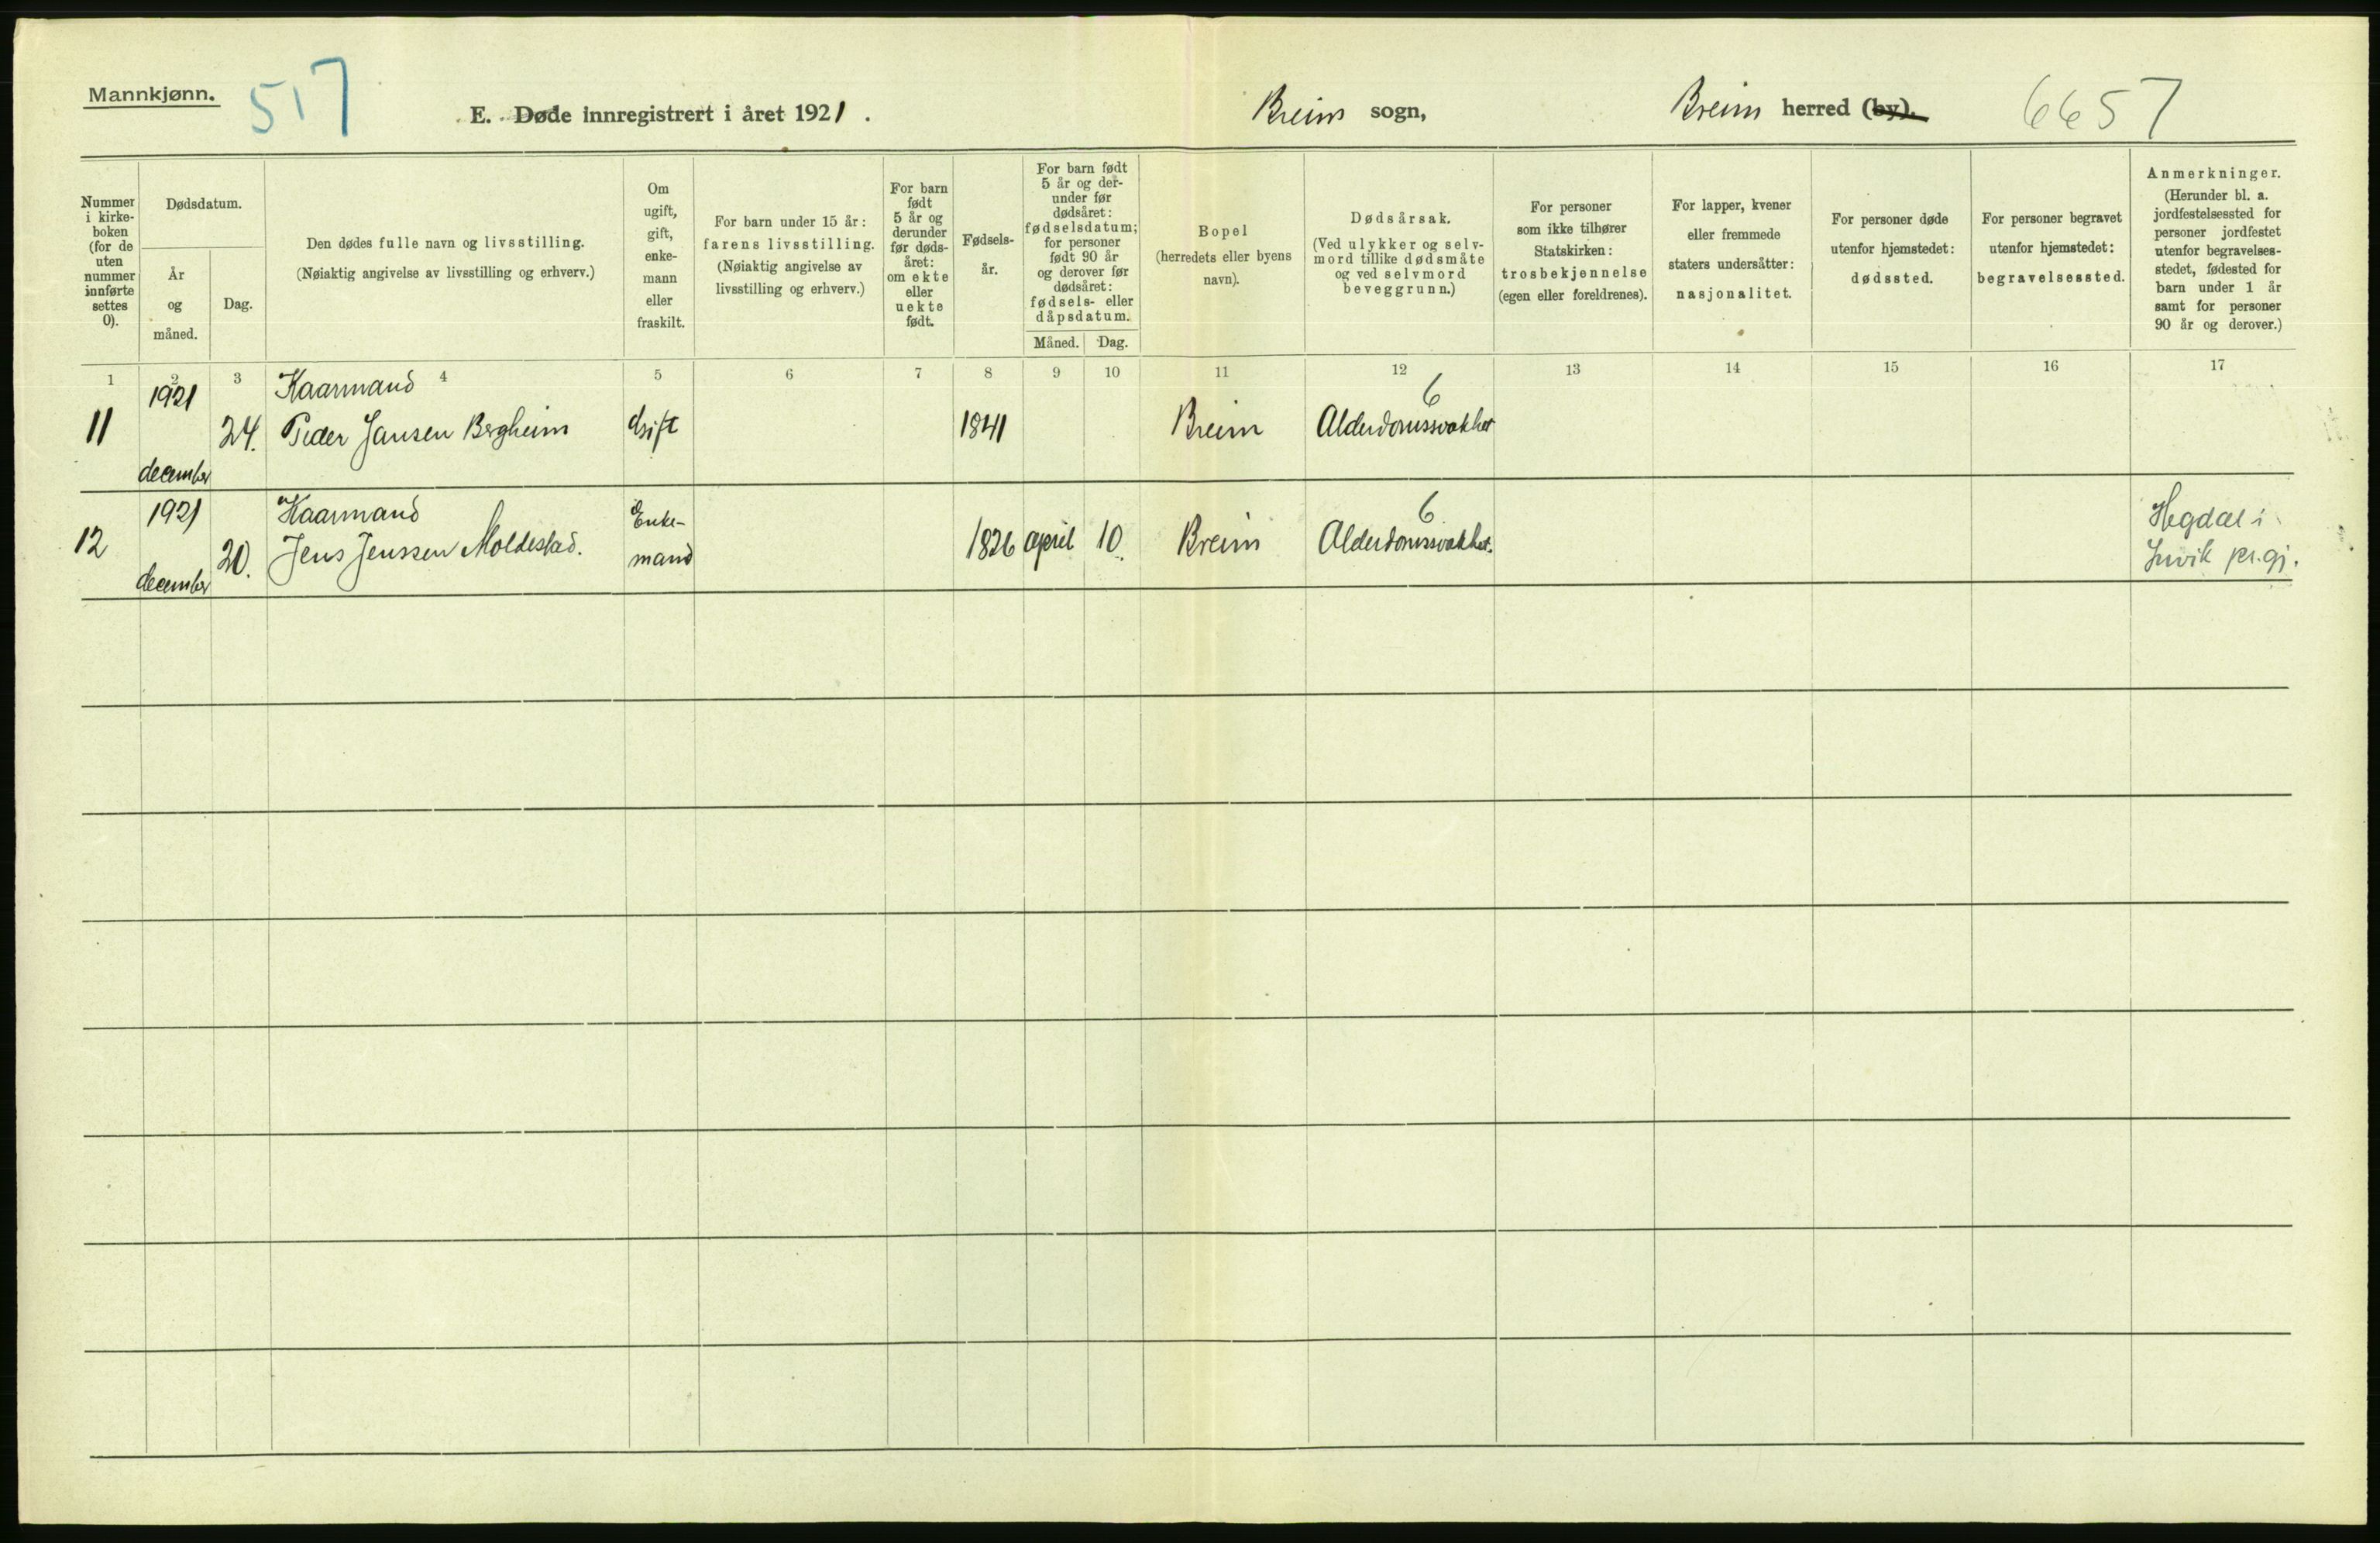 Mannkjønn.
517
E. Døde innregistrert i året 1921.
Breim sogn,
Breim herred (by).
6657
Nummer
i kirke-
boken
(for de
uten
nummer
innførte
settes
0).
Dødsdatum.
År
og
måned.
Dag.
Den dødes fulle navn og livsstilling.
(Nøiaktig angivelse av livsstilling og erhverv.)
Om
ugift,
gift,
enke-
mann
eller
fraskilt.
For barn under 15 år:
farens livsstilling.
(Nøiaktig angivelse av
livsstilling og erhverv.)
For barn
født
5 år og
derunder
før døds-
året:
om ekte
eller
uekte
født.
Fødsels-
år.
For barn født
5 år og der-
under før
dødsåret:
fødselsdatum;
for personer
født 90 år
og derover før
dødsåret:
fødsels- eller
dåpsdatum.
Måned. Dag.
Bopel
(herredets eller byens
navn).
Dødsårsak.
(Ved ulykker og selv-
mord tillike dødsmåte
og ved selvmord
beveggrunn.)
For personer
som ikke tilhører
Statskirken:
trosbekjennelse
(egen eller foreldrenes).
For lapper, kvener
eller fremmede
staters undersåtter:
nasjonalitet.
For personer døde
utenfor hjemstedet:
dødssted.
For personer begravet
utenfor hjemstedet:
begravelsessted.
Anmerkninger.
(Herunder bl. a.
jordfestelsessted for
personer jordfestet
utenfor begravelses-
stedet, fødested for
barn under 1 år
samt for personer
90 år og derover.)
1 2 3 4 5 6 7 8 9 10 11 12 13 14 15 16 17
1921 Kaarmand 6
11 24. Peder Jansen Bergheim Gift 1841 Breim Alderdomssvakhet
december
1921 Kaarmand Enke- 6 Hegdal i
12 20. Jens Jenssen Moldestad. mand 1826 april 10. Breim Alderdomssvakhet. Invik pr.gj.
december